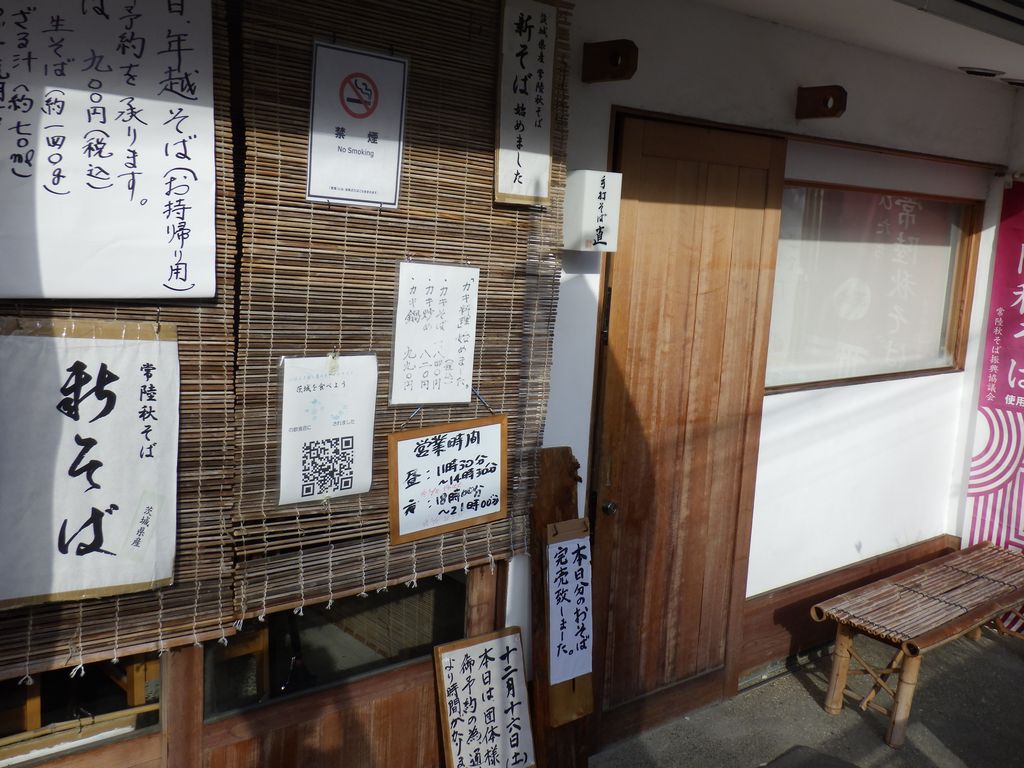 日、年越そば(お持帰り用)
予約を承ります。
九〇〇円(税込)
生そば(約一四〇g)
ざる汁(約七〇ml)
常陸秋そば
新そば
茨城県産
禁煙
No Smoking
茨城県産 常陸秋そば
新そば 始めました
手打そば 直
カキ料理 始めました。
カキそば 一八四〇円(税込)
カキ炒め 八二〇円
カキ鍋 九九〇円
茨城を食べよう
の飲食店に
されました
営業時間
昼:11時30分
～14時30分
夜:18時00分
～21時00分
本日分のおそば
完売致しました。
十二月十六日(土)
本日は団体様
御予約の為通
より時間がかかりま
常陸秋そば
ひたち
常陸秋そば振興協議会
使用